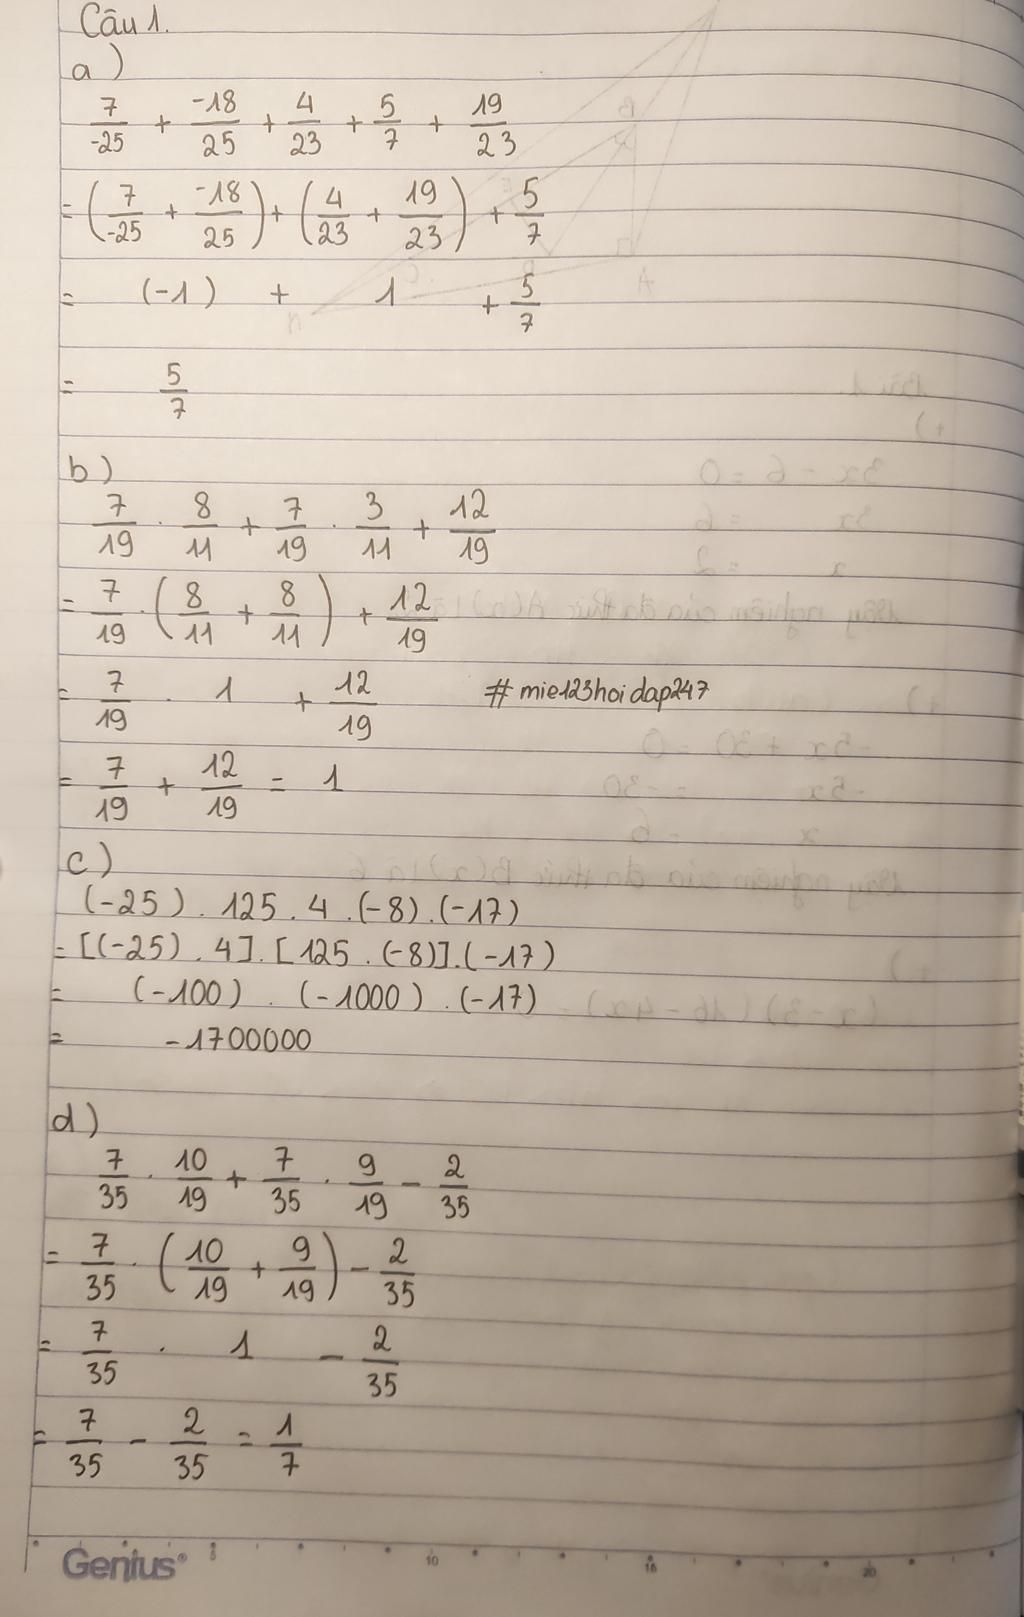 Câu 1.
a)
7/-25 + -18/25 + 4/23 + 5/7 + 19/23
= (7/-25 + -18/25) + (4/23 + 19/23) + 5/7
= (-1) + 1 + 5/7
= 5/7
b)
7/19 . 8/11 + 7/19 . 3/11 + 12/19
= 7/19 . (8/11 + 8/11) + 12/19
= 7/19 . 1 + 12/19 # mie123hoidap247
= 7/19 + 12/19 = 1
c)
(-25) . 125 . 4 . (-8) . (-17)
= [(-25) . 4] . [125 . (-8)] . (-17)
= (-100) . (-1000) . (-17)
= -1700000
d)
7/35 . 10/19 + 7/35 . 9/19 - 2/35
= 7/35 . (10/19 + 9/19) - 2/35
= 7/35 . 1 - 2/35
= 7/35 - 2/35 = 1/7
Genius® 5 10 15 20